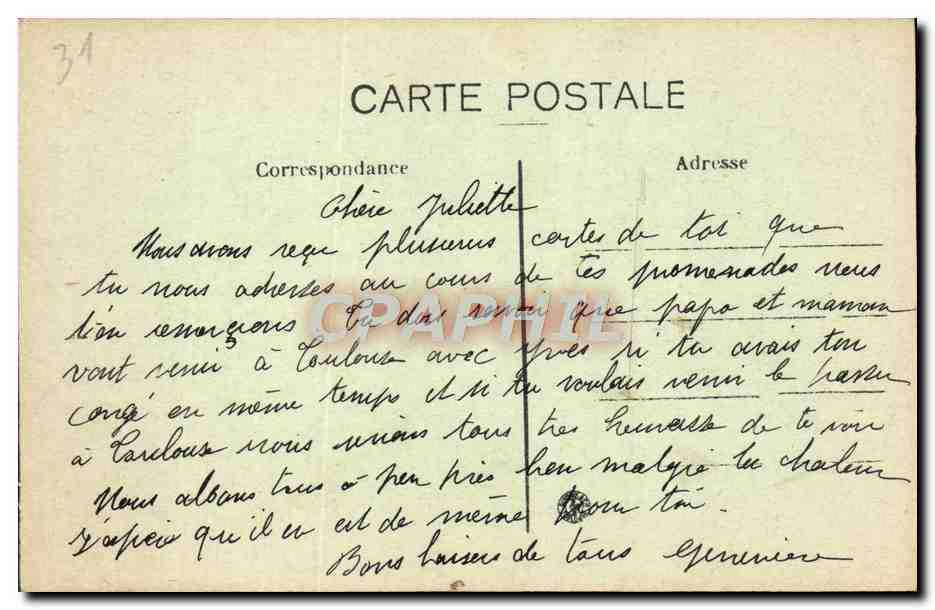 31
CARTE POSTALE
Correspondance
Adresse
Chère Juliette
Nous avons reçu plusieurs cartes de toi que
tu nous adresses au cours de tes promenades nous
t'en remercions Tu dois savoir que papa et maman
vont venir à Toulouse avec Yves si tu avais ton
congé en même temps et si tu voulais venir le passer
à Toulouse nous serions tous très heureuse de te voir
Nous allons tous à peu près bien malgré la chaleur
j'espère qu'il en est de même pour toi.
Bons baisers de tous Geneviève
CPAPHIL